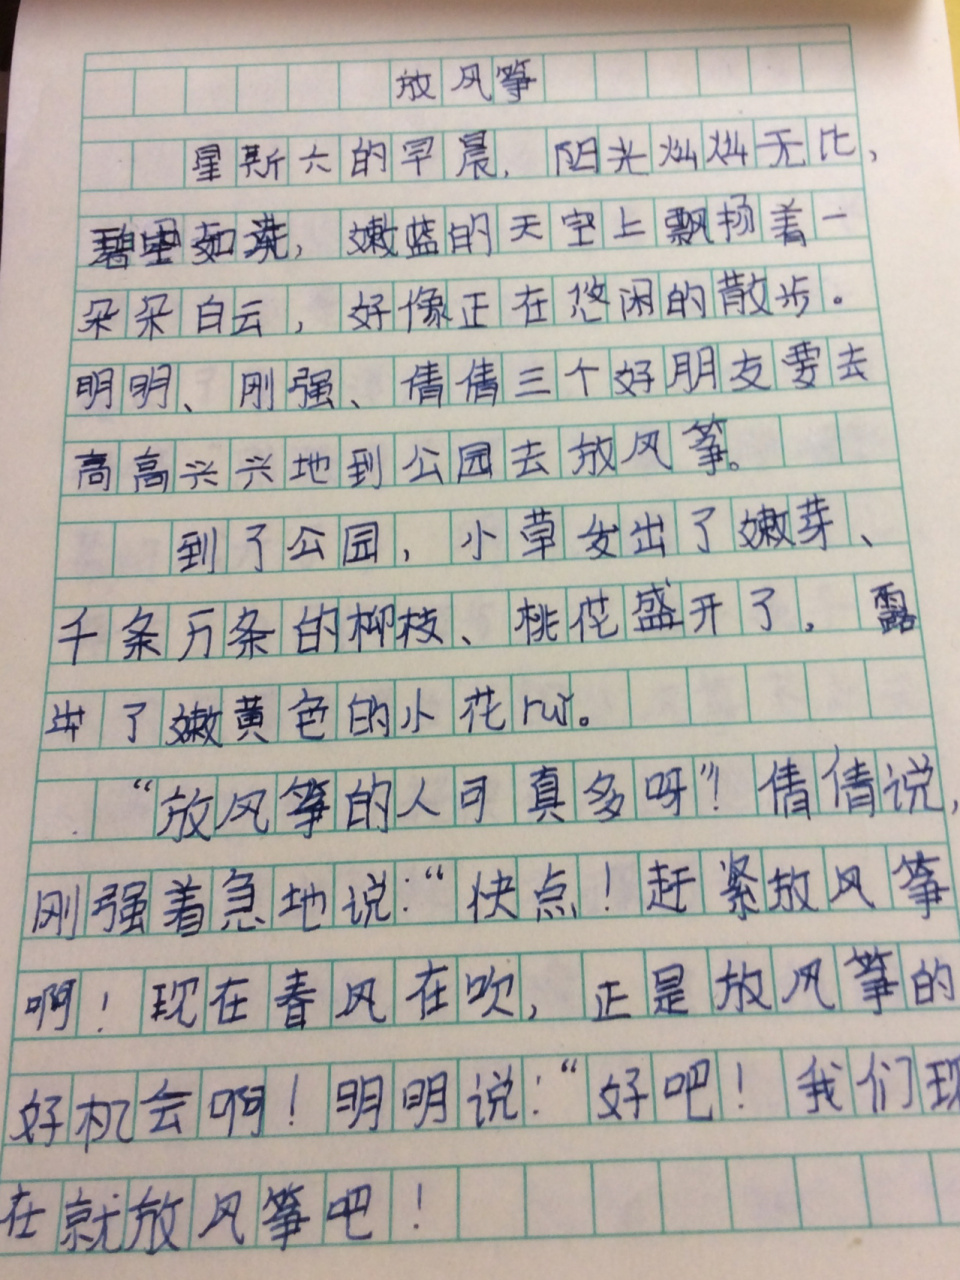 放风筝
星斯六的早晨，阳光灿灿无比，
碧里如洗，嫩蓝的天空上飘扬着一
朵朵白云，好像正在悠闲的散步。
明明、刚强、倩倩三个好朋友要去
高高兴兴地到公园去放风筝。
到了公园，小草发出了嫩芽、
千条万条的柳枝、桃花盛开了，露
出了嫩黄色的小花ruǐ。
“放风筝的人可真多呀”！倩倩说，
刚强着急地说：“快点！赶紧放风筝
啊！现在春风在吹，正是放风筝的
好机会啊！明明说：“好吧！我们现
在就放风筝吧！